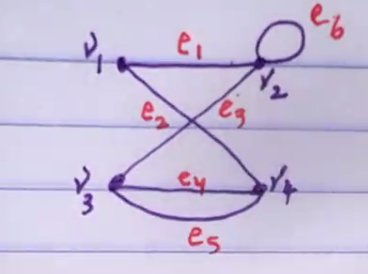 v₁ e₁ e₆
v₂
e₂ e₃
v₃ e₄ v₄
e₅